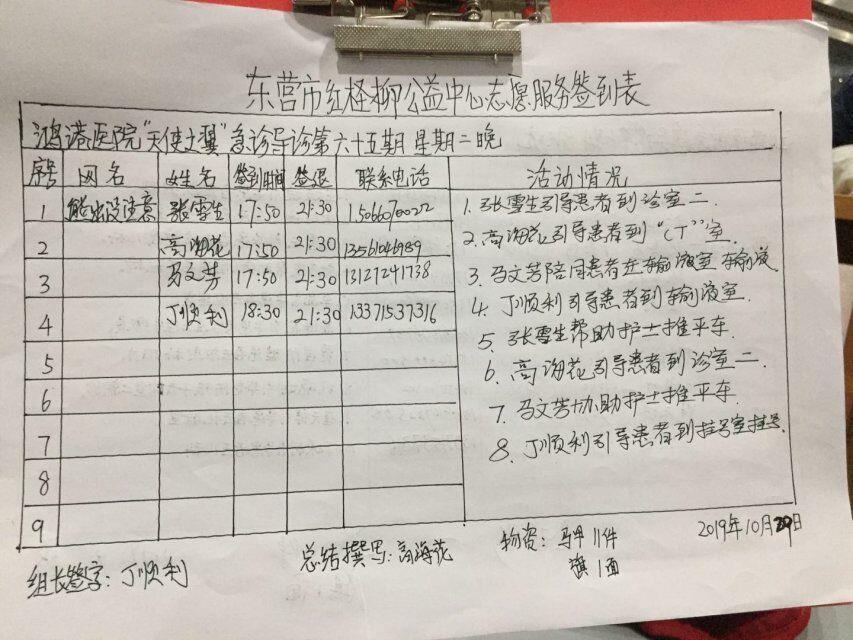 东营市红柽柳公益中心志愿服务签到表
鸿港医院"天使之翼"急诊导诊第六十五期 星期二晚
序号 网名 姓名 签到时间 签退 联系电话 活动情况
1 能出没注意 张雪生 17:50 21:30 15066070022
2 高海花 17:50 21:30 13561046989
3 马文芳 17:50 21:30 13127241738
4 丁顺利 18:30 21:30 13371537316
5
6
7
8
9
1. 张雪生引导患者到诊室二.
2. 高海花引导患者到"CT"室.
3. 马文芳陪同患者在输液室输液
4. 丁顺利引导患者到输液室.
5. 张雪生帮助护士推平车.
6. 高海花引导患者到诊室二.
7. 马文芳协助护士推平车
8. 丁顺利引导患者到挂号室挂号.
组长签字: 丁顺利
总结撰写: 高海花
物资: 马甲11件
旗1面
2019年10月29日